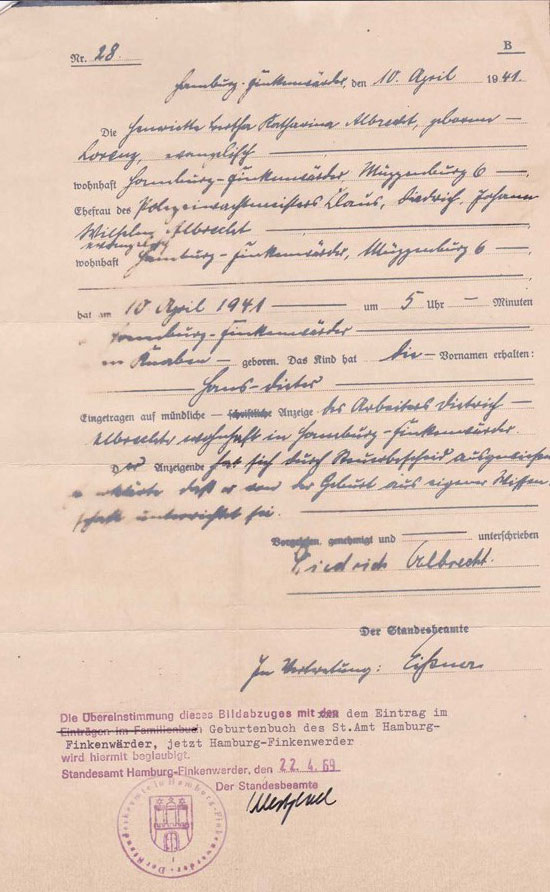 Nr. 28
B
Hamburg-Finkenwärder, den 10. April 1941.
Die Henriette Bertha Katharina Albrecht, geborene
Lorenz, evangelisch
wohnhaft Hamburg-Finkenwärder, Müggenburg 6
Ehefrau des Polizeiwachtmeisters Claus, Diedrich, Johann
Wilhelm Albrecht
evangelisch
wohnhaft Hamburg-Finkenwärder, Müggenburg 6
hat am 10 April 1941 um 5 Uhr Minuten
Hamburg-Finkenwärder
Knaben geboren. Das Kind hat die Vornamen erhalten:
Hans-Dieter
Eingetragen auf mündliche — schriftliche Anzeige des Arbeiters Dietrich
Albrecht, wohnhaft in Hamburg-Finkenwärder.
Der Anzeigende hat sich durch Steuerbescheid ausgewiesen
erklärte daß er von der Geburt aus eigener Wissen-
schaft unterrichtet sei.
Vorgelesen, genehmigt und unterschrieben
Diedrich Albrecht.
Der Standesbeamte
In Vertretung:
Die Übereinstimmung dieses Bildabzuges mit den dem Eintrag im
Einträgen im Familienbuch Geburtenbuch des St.Amt Hamburg-
Finkenwärder, jetzt Hamburg-Finkenwerder
wird hiermit beglaubigt.
Standesamt Hamburg-Finkenwerder, den 22.4.69
Der Standesbeamte